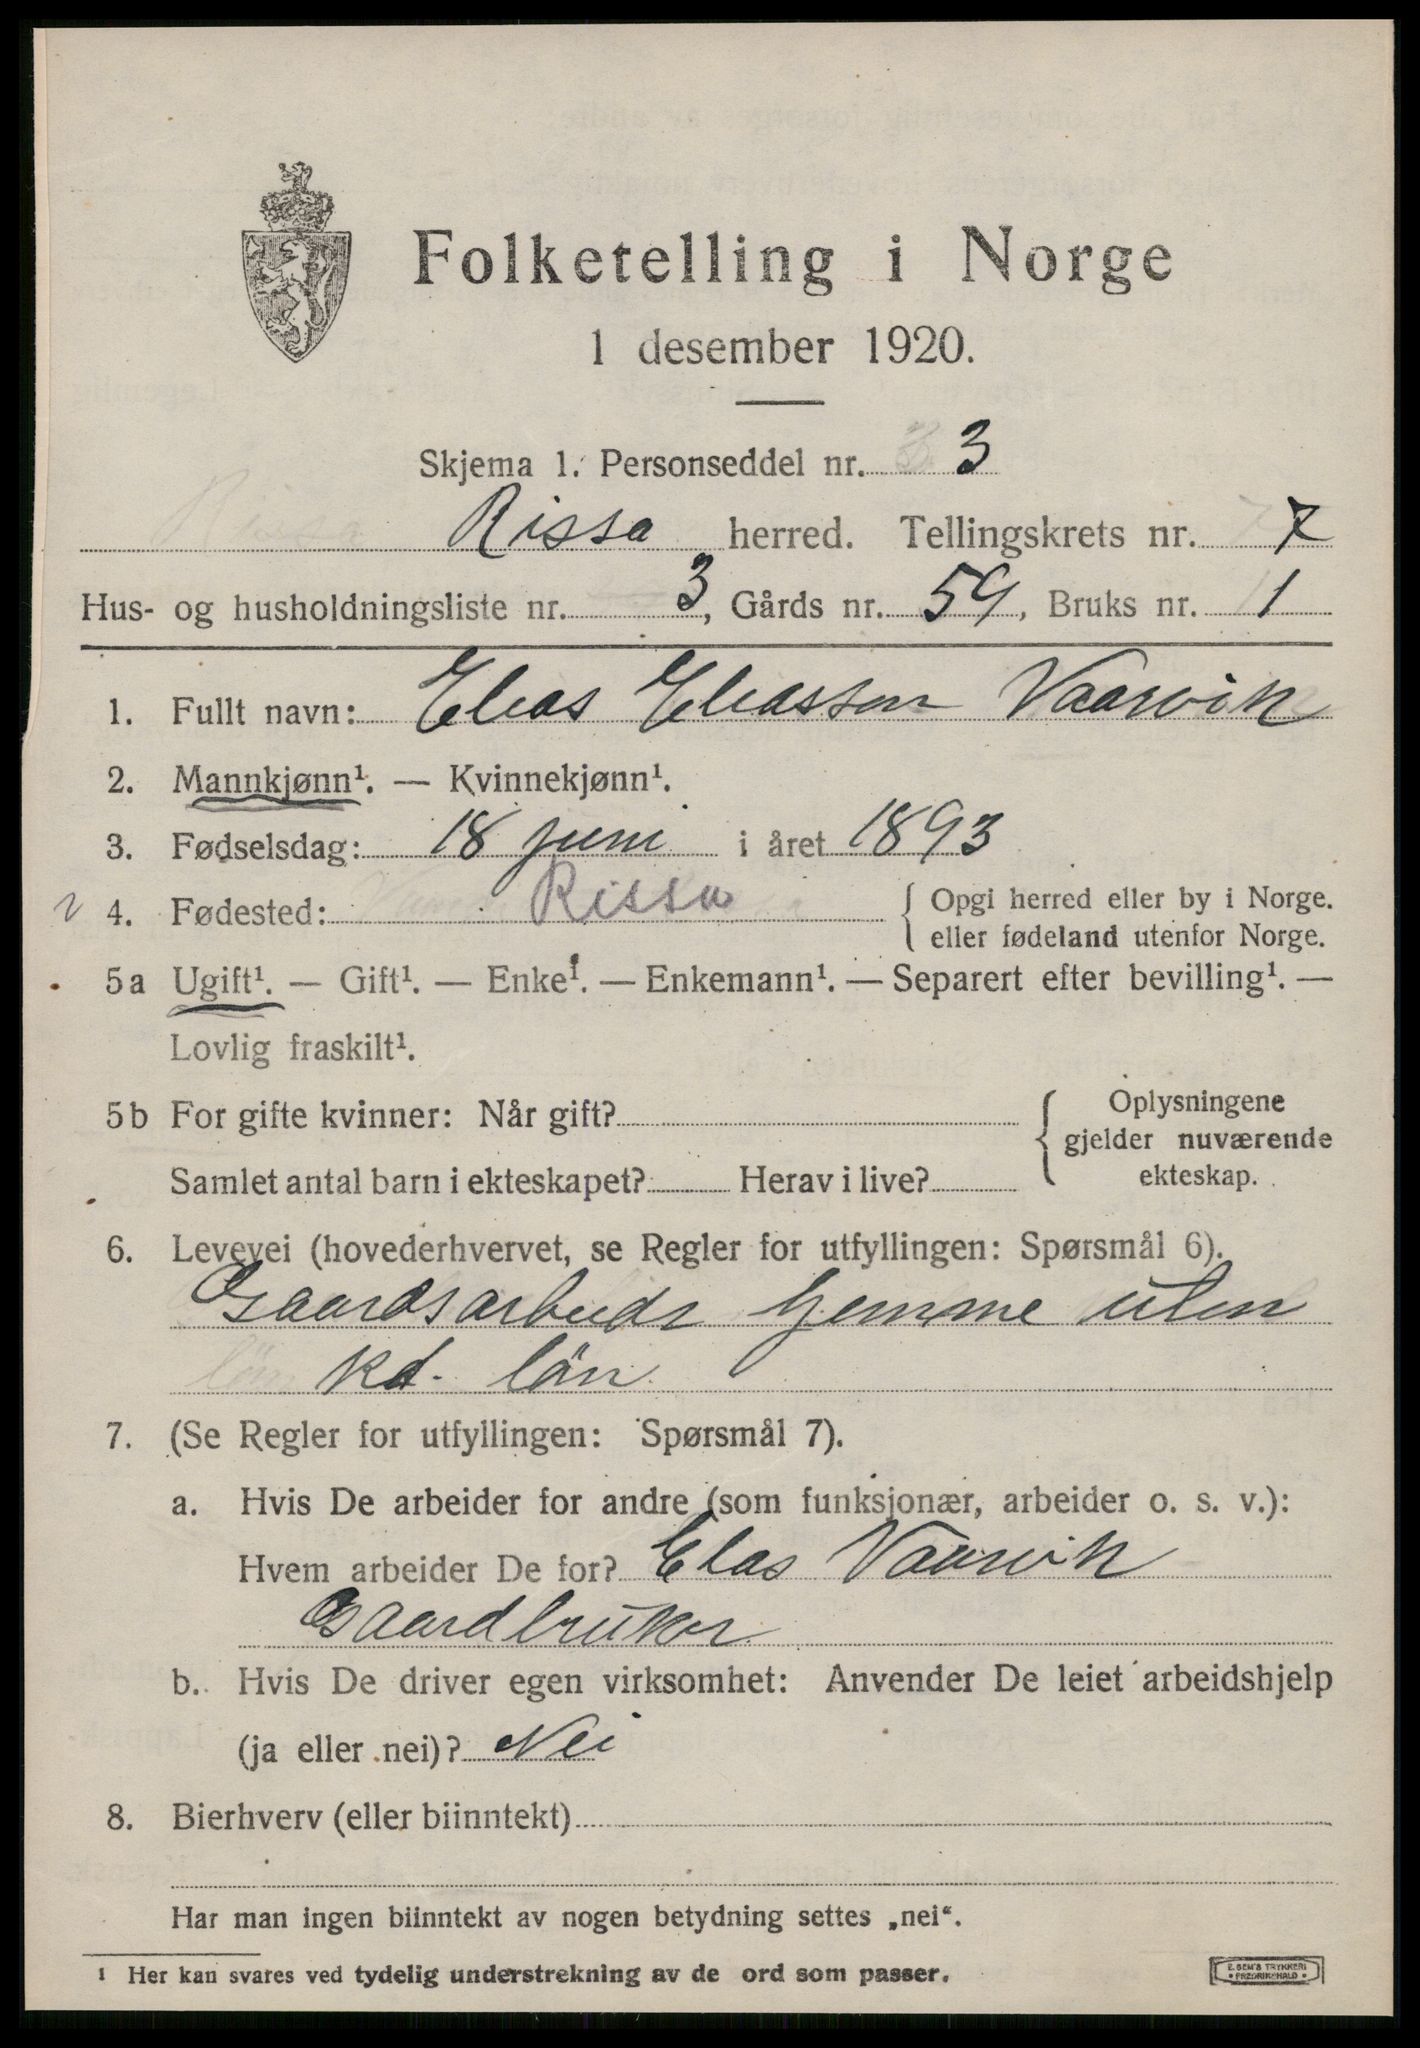 Folketelling i Norge
1 desember 1920.
Skjema 1. Personseddel nr. 3
Rissa herred. Tellingskrets nr. 7
Hus- og husholdningsliste nr. 3, Gårds nr. 59, Bruks nr. 1
1. Fullt navn: Elias Eliassen Vaarvik
2. Mannkjønn¹. — Kvinnekjønn¹.
3. Fødselsdag: 18 juni i året 1893
4. Fødested: Rissa { Opgi herred eller by i Norge.
eller fødeland utenfor Norge.
5a Ugift¹. — Gift¹. — Enke¹. — Enkemann¹. — Separert efter bevilling¹. —
Lovlig fraskilt¹.
5b For gifte kvinner: Når gift? { Oplysningene
gjelder nuværende
ekteskap.
Samlet antal barn i ekteskapet? Herav i live?
6. Levevei (hovederhvervet, se Regler for utfyllingen: Spørsmål 6).
Gaardsarbeide hjemme uten
kd. lön
7. (Se Regler for utfyllingen: Spørsmål 7).
a. Hvis De arbeider for andre (som funksjonær, arbeider o. s. v.):
Hvem arbeider De for? Elas Vaarvik
Gaardbruker
b. Hvis De driver egen virksomhet: Anvender De leiet arbeidshjelp
(ja eller nei)? Nei
8. Bierhverv (eller biinntekt)
Har man ingen biinntekt av nogen betydning settes „nei“.
¹ Her kan svares ved tydelig understrekning av de ord som passer.
E. SEM'S TRYKKERI
FREDRIKSHALD